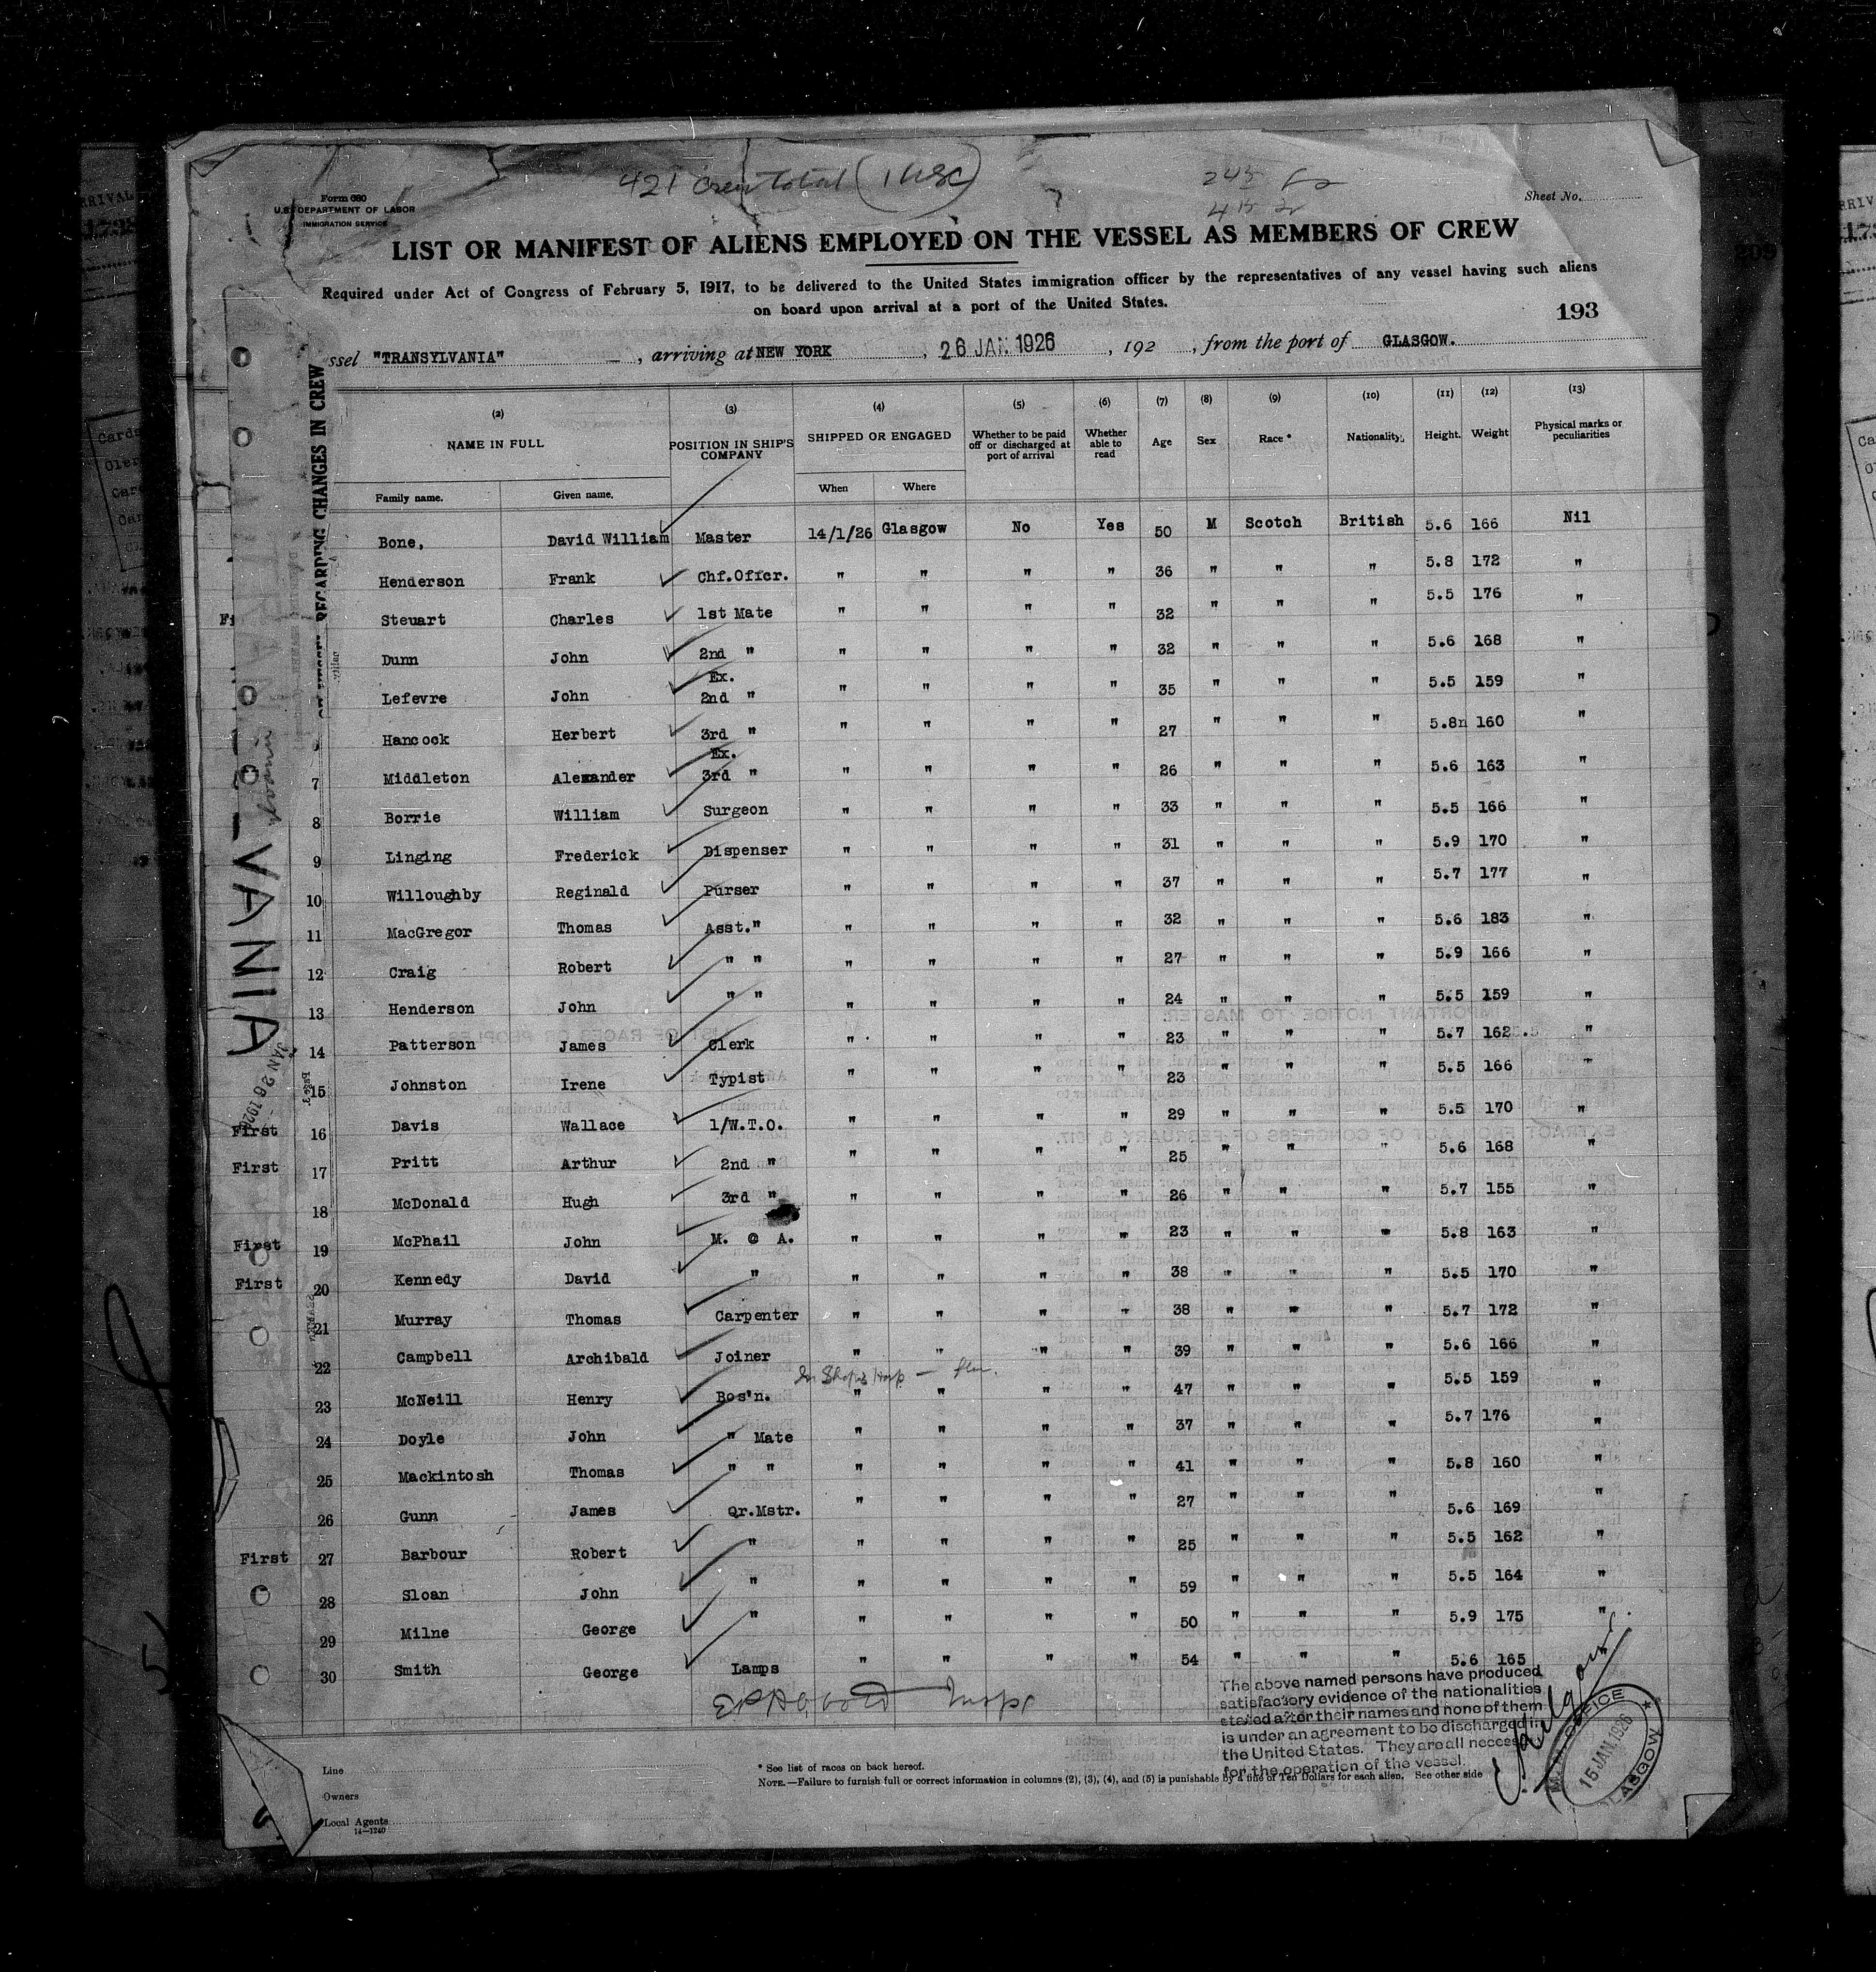 421 Crew total (1 USC)
Form 680
U.S. DEPARTMENT OF LABOR
IMMIGRATION SERVICE
Sheet No.
LIST OR MANIFEST OF ALIENS EMPLOYED ON THE VESSEL AS MEMBERS OF CREW
Required under Act of Congress of February 5, 1917, to be delivered to the United States immigration officer by the representatives of any vessel having such aliens
on board upon arrival at a port of the United States.
193
ssel "TRANSYLVANIA", arriving at NEW YORK, 26 JAN 1926, 192, from the port of GLASGOW.
REGARDING CHANGES IN CREW
VANIA
JAN 26 192
(2) (3) (4) (5) (6) (7) (8) (9) (10) (11) (12) (13)
NAME IN FULL POSITION IN SHIP'S COMPANY SHIPPED OR ENGAGED Whether to be paid off or discharged at port of arrival Whether able to read Age Sex Race * Nationality. Height. Weight Physical marks or peculiarities
Family name. Given name. When Where
Bone, David William Master 14/1/26 Glasgow No Yes 50 M Scotch British 5.6 166 Nil
Henderson Frank Chf.Offcr. " " " " 36 " " " 5.8 172 "
Steuart Charles 1st Mate " " " " 32 " " " 5.5 176 "
Dunn John 2nd " " " " " 32 " " " 5.6 168 "
Lefevre John Ex. 2nd " " " " " 35 " " " 5.5 159 "
Hancock Herbert 3rd " " " " " 27 " " " 5.8n 160 "
7 Middleton Alexander Ex. 3rd " " " " " 26 " " " 5.6 163 "
8 Borrie William Surgeon " " " " 33 " " " 5.5 166 "
9 Linging Frederick Dispenser " " " " 31 " " " 5.9 170 "
10 Willoughby Reginald Purser " " " " 37 " " " 5.7 177 "
11 MacGregor Thomas Asst." " " " " 32 " " " 5.6 183 "
12 Craig Robert " " " " " " 27 " " " 5.9 166 "
13 Henderson John " " " " " " 24 " " " 5.5 159 "
14 Patterson James Clerk " " " " 23 " " " 5.7 162 "
15 Johnston Irene Typist " " " " 23 " " " 5.5 166 "
First 16 Davis Wallace 1/W.T.O. " " " " 29 " " " 5.5 170 "
First 17 Pritt Arthur 2nd " " " " " 25 " " " 5.6 168 "
18 McDonald Hugh 3rd " " " " " 26 " " " 5.7 155 "
First 19 McPhail John M. @ A. " " " " 23 " " " 5.8 163 "
First 20 Kennedy David " " " " " 38 " " " 5.5 170 "
21 Murray Thomas Carpenter " " " " 38 " " " 5.7 172 "
22 Campbell Archibald Joiner " " " " 39 " " " 5.6 166 "
23 McNeill Henry Bos'n. " " " " 47 " " " 5.5 159 "
24 Doyle John " Mate " " " " 37 " " " 5.7 176 "
25 Mackintosh Thomas " " " " " " 41 " " " 5.8 160 "
26 Gunn James Qr.Mstr. " " " " 27 " " " 5.6 169 "
First 27 Barbour Robert " " " " " 25 " " " 5.5 162 "
28 Sloan John " " " " " 59 " " " 5.5 164 "
29 Milne George " " " " " 50 " " " 5.9 175 "
30 Smith George Lamps " " " " 54 " " " 5.6 165 "
The above named persons have produced
satisfactory evidence of the nationalities
stated after their names and none of them
is under an agreement to be discharged in
the United States. They are all necess
for the operation of the vessel.
OFFICE
15 JAN. 1926
GLASGOW
Line
Owners
Local Agents
14—1240
* See list of races on back hereof.
NOTE.—Failure to furnish full or correct information in columns (2), (3), (4), and (5) is punishable by a fine of Ten Dollars for each alien. See other side